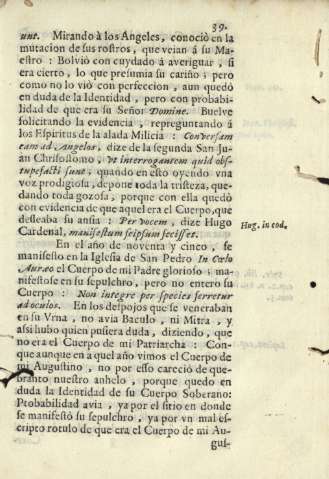 39.
unt. Mirando à los Angeles, conociò en la
mutacion de sus rostros, que veian á su Ma-
estro : Bolviò con cuydado á averiguar, si
era cierto, lo que presumia su cariño ; pero
como no lo viò con perfeccion, aun quedò
en duda de la Identidad, pero con probabi-
lidad de que era su Señor Domine. Buelve
solicitando la evidencia, repreguntando á
los Espiritus de la alada Milicia : Conversam
eam ad Angelos, dize de la segunda San Ju-
an Chrisostomo, vt interrogantem quid obs-
tupefacti sunt, quando en esto oyendo vna
voz prodigiosa, depone toda la tristeza, que-
dando toda gozosa, porque con ella quedò
con evidencia de que aquel era el Cuerpo, que
desseaba su ansia : Per vocem, dize Hugo
Cardenal, manifestum seipsum fecisset.
Hug. in eod.
En el año de noventa y cinco, se
manifestò en la Iglesia de San Pedro In Cœlo
Aureo el Cuerpo de mi Padre glorioso ; ma-
nifestose en su sepulchro, pero no entero su
Cuerpo : Non integre per species ferretur
ad oculos. En los despojos que se veneraban
en su Vrna, no avia Baculo, ni Mitra, y
assi hubo quien pusiera duda, diziendo, que
no era el Cuerpo de mi Patriarcha : Con-
que aunque en aquel año vimos el Cuerpo de
mi Augustino, no por esso careciò de que-
branto nuestro anhelo, porque quedo en
duda la Identidad de su Cuerpo Soberano:
Probabilidad avia, ya por el sitio en donde
se manifestò su sepulchro, ya por vn mal es-
cripto rotulo de que era el Cuerpo de mi Au-
gus-